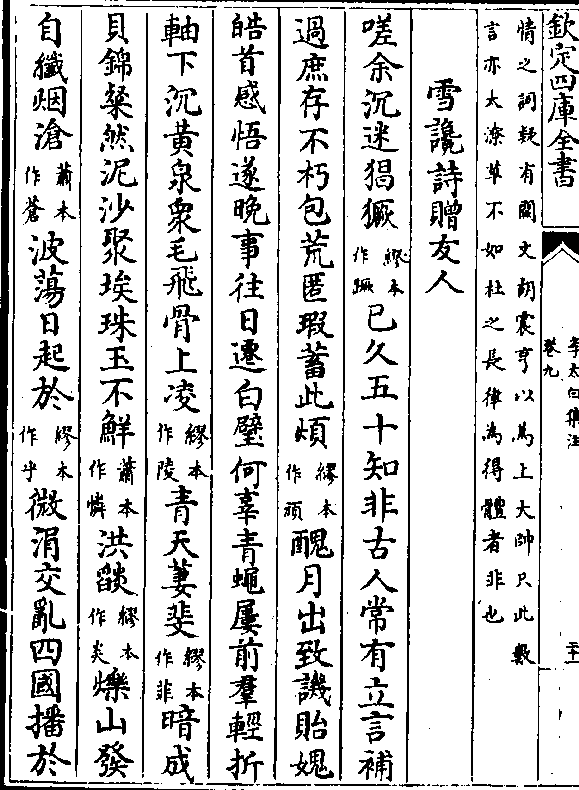 欽定四庫全書
李太白集注
卷九
情之詞疑有闕文胡震亨以為上大帥只此數
言亦太潦草不如杜之長律為得體者非也
雪讒詩贈友人
嗟余沉迷猖獗繆本作蹶已久五十知非古人常有立言補
過庶存不朽包荒匿瑕蓄此煩繆本作頑醜月出致譏貽媿
皓首感悟遂晚事往日遷白璧何辜青蠅屢前羣輕折
軸下沉黃泉衆毛飛骨上凌繆本作陵青天萋斐繆本作菲暗成
貝錦粲然泥沙聚埃珠玉不鮮蕭本作憐洪燄繆本作炎爍山發
自纖烟滄蕭本作蒼波蕩日起於繆本作乎微涓交亂四國播於